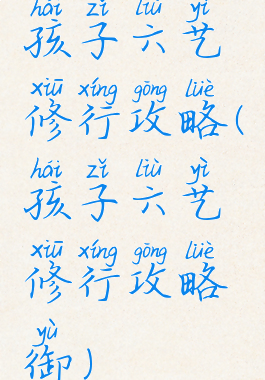 hái zǐ liù yì
孩子六艺
xiū xíng gōng lüè
修行攻略(
hái zǐ liù yì
孩子六艺
xiū xíng gōng lüè
修行攻略
yù
御)